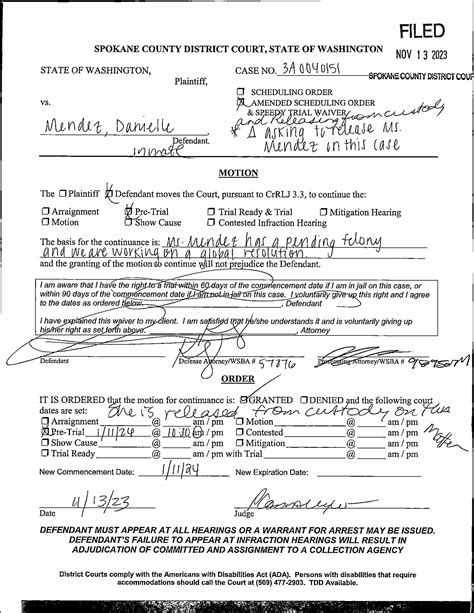 FILED
NOV 13 2023
SPOKANE COUNTY DISTRICT COURT
SPOKANE COUNTY DISTRICT COURT, STATE OF WASHINGTON
STATE OF WASHINGTON,
Plaintiff,
vs.
Mendez, Danielle
Defendant.
inmate
CASE NO. 3A0040151
☐ SCHEDULING ORDER
☒ AMENDED SCHEDULING ORDER
& SPEEDY TRIAL WAIVER
and Releasing from custody
* Δ asking to release Ms.
Mendez in this case
MOTION
The ☐ Plaintiff ☒ Defendant moves the Court, pursuant to CrRLJ 3.3, to continue the:
☐ Arraignment ☒ Pre-Trial ☐ Trial Ready & Trial ☐ Mitigation Hearing
☐ Motion ☐ Show Cause ☐ Contested Infraction Hearing
The basis for the continuance is: Ms. Mendez has a pending felony
and we are working on a global resolution.
and the granting of the motion to continue will not prejudice the Defendant.
I am aware that I have the right to a trial within 60 days of the commencement date if I am in jail on this case, or
within 90 days of the commencement date if I am not in jail on this case. I voluntarily give up this right and I agree
to the dates as ordered below. , Defendant
I have explained this waiver to my client. I am satisfied that he/she understands it and is voluntarily giving up
his/her right as set forth above. , Attorney
Defendant Defense Attorney/WSBA # 57876 Prosecuting Attorney/WSBA #
ORDER
IT IS ORDERED that the motion for continuance is: ☒ GRANTED ☐ DENIED and the following court
dates are set: She is released from custody on this
matter
☐ Arraignment @ am / pm ☐ Motion @ am / pm
☒ Pre-Trial 1/11/24 @ 10:30 am / pm ☐ Contested @ am / pm
☐ Show Cause @ am / pm ☐ Mitigation @ am / pm
☐ Trial Ready @ am / pm with Trial @ am / pm
New Commencement Date: 1/11/24 New Expiration Date:
Date Judge
DEFENDANT MUST APPEAR AT ALL HEARINGS OR A WARRANT FOR ARREST MAY BE ISSUED.
DEFENDANT'S FAILURE TO APPEAR AT INFRACTION HEARINGS WILL RESULT IN
ADJUDICATION OF COMMITTED AND ASSIGNMENT TO A COLLECTION AGENCY
District Courts comply with the Americans with Disabilities Act (ADA). Persons with disabilities that require
accommodations should call the Court at (509) 477-2903. TDD Available.